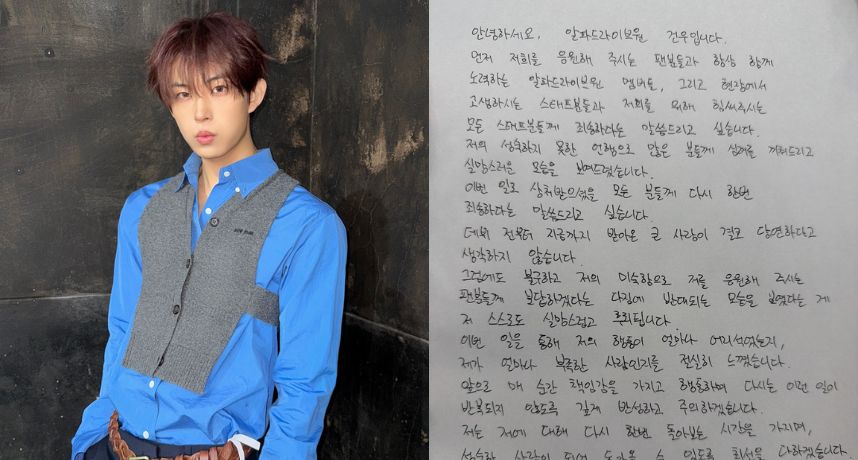 안녕하세요, 알파드라이브원 건우입니다.
먼저 저희를 응원해 주시는 팬분들과 항상 함께
노력하는 알파드라이브원 멤버들, 그리고 현장에서
고생하시는 스태프분들과 저희를 위해 힘써주시는
모든 스태프분들께 죄송하다는 말씀드리고 싶습니다.
저의 성숙하지 못한 언행으로 많은 분들께 심려를 끼쳐드리고
실망스러운 모습을 보여드렸습니다.
이번 일로 상처받으셨을 모든 분들께 다시 한번
죄송하다는 말씀드리고 싶습니다.
데뷔 전부터 지금까지 받아온 큰 사랑이 결코 당연하다고
생각하지 않습니다.
그럼에도 불구하고 저의 미숙함으로 저를 응원해 주시는
팬분들께 보답하겠다는 다짐에 반대되는 모습을 보였다는 게
저 스스로도 실망스럽고 후회됩니다.
이번 일을 통해 저의 행동이 얼마나 어리석었는지,
제가 얼마나 부족한 사람인지를 절실히 느꼈습니다.
앞으로 매 순간 책임감을 가지고 행동하며 다시는 이런 일이
반복되지 않도록 깊게 반성하고 주의하겠습니다.
저는 저에 대해 다시 한번 돌아보는 시간을 가지며,
성숙한 사람이 되어 돌아올 수 있도록 최선을 다하겠습니다.